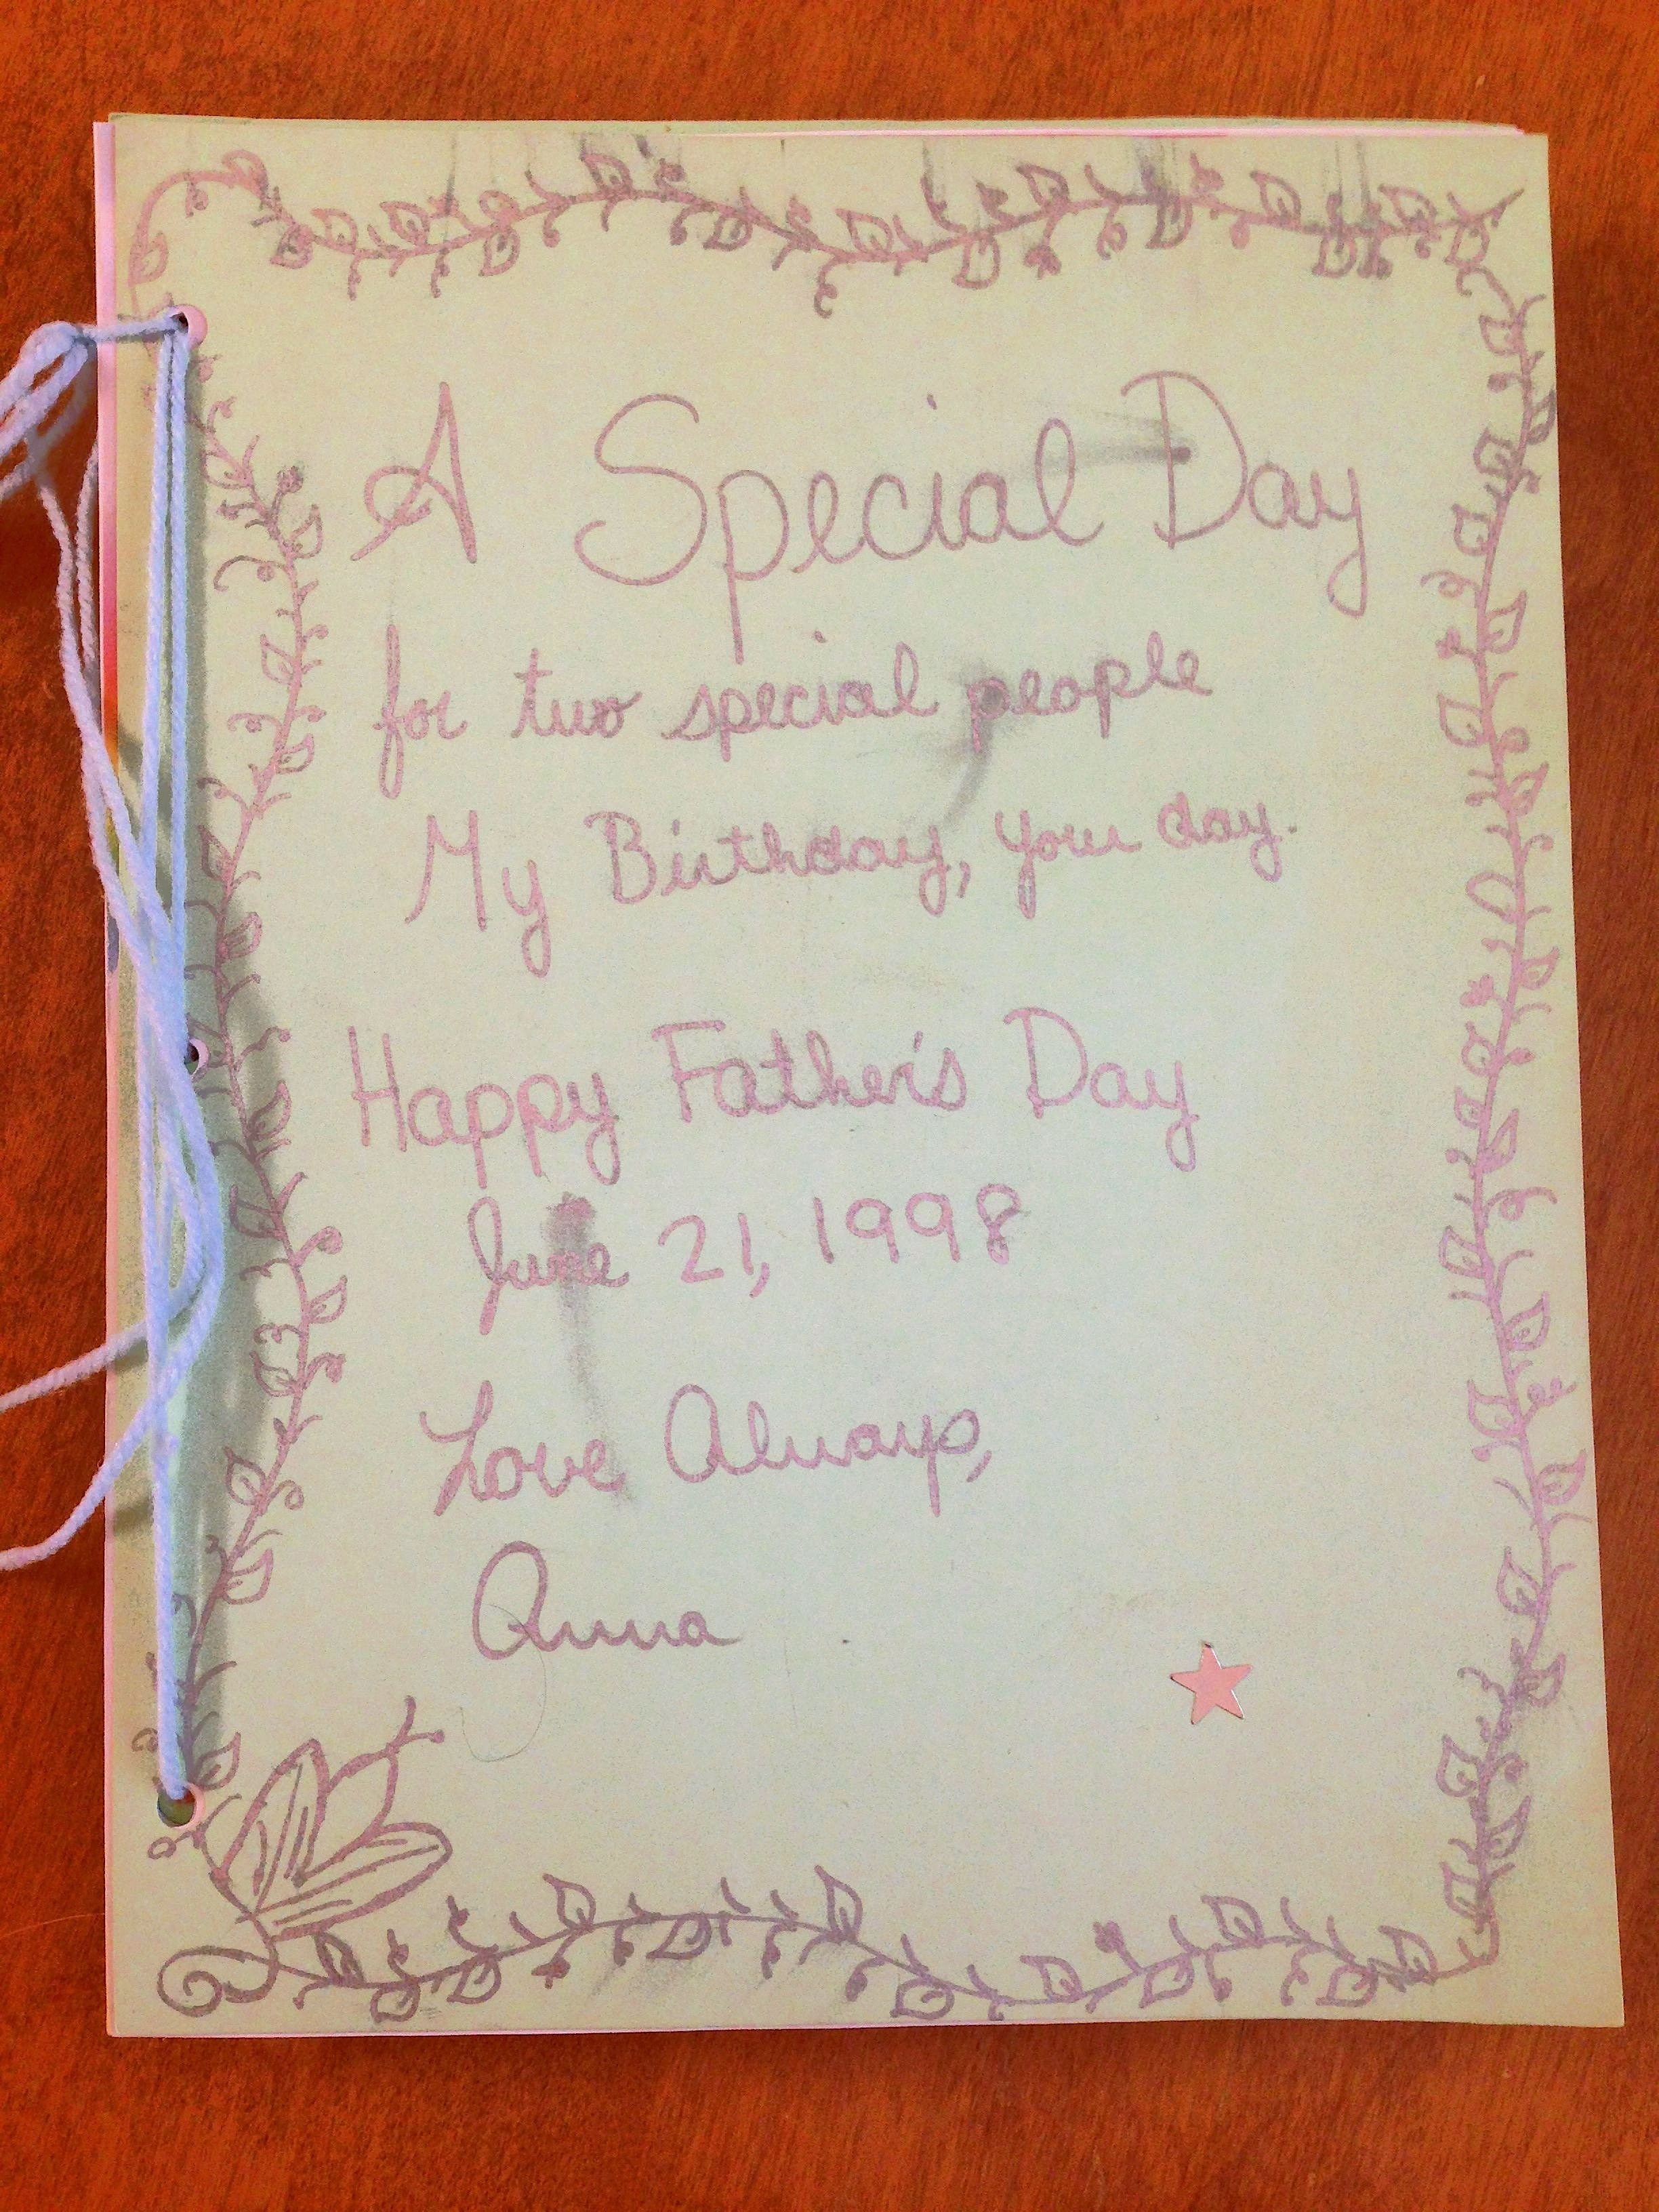 A Special Day
for two special people
My Birthday, your day.
Happy Father's Day
June 21, 1998
Love Always,
Anna